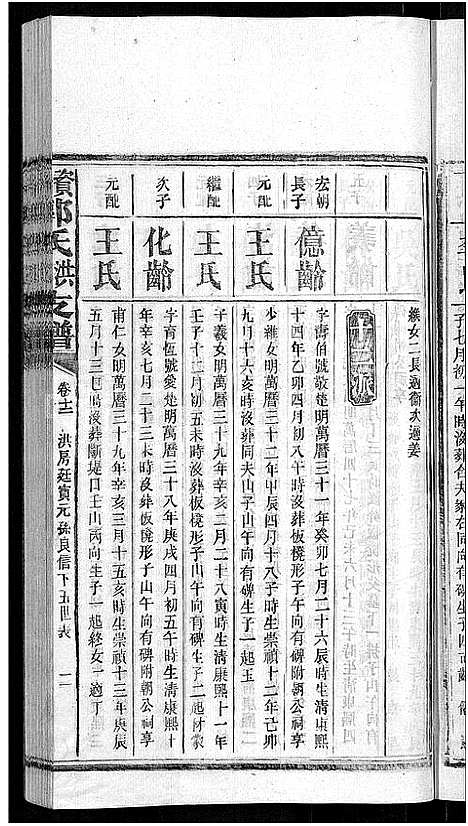 績女二長適衞次適姜
十二派
宏朝
長子
億齡
字壽伯號敬楚明萬曆三十一年癸卯七月二十六辰時生清康熙
十四年乙卯四月初八午時沒葬板櫈形子山午向有碑附朝公祠享
元配
王氏
少雅女明萬曆三十二年甲辰四月十八子時生崇禎十二年己卯
九月十六亥時沒葬同夫山子山午向有碑生子一起玉
繼配
王氏
子義女明萬曆三十九年辛亥二月二十八寅時生清康熙十一年
壬子十二月初五未時沒葬板櫈形子山午向有碑生子二起財蒙
次子
化齡
字育恆號愛楚明萬曆三十八年庚戌四月初五午時生清康熙十
年辛亥七月二十三未時沒葬板櫈形子山午向有碑附朝公祠享
元配
王氏
甫仁女明萬曆三十九年辛亥三月十五亥時生崇禎十三年庚辰
五月十三巳時沒葬斷堤口壬山丙向生子一起終女一適丁
資邱氏洪支譜
卷十二
洪房廷實元孫良信下五世表